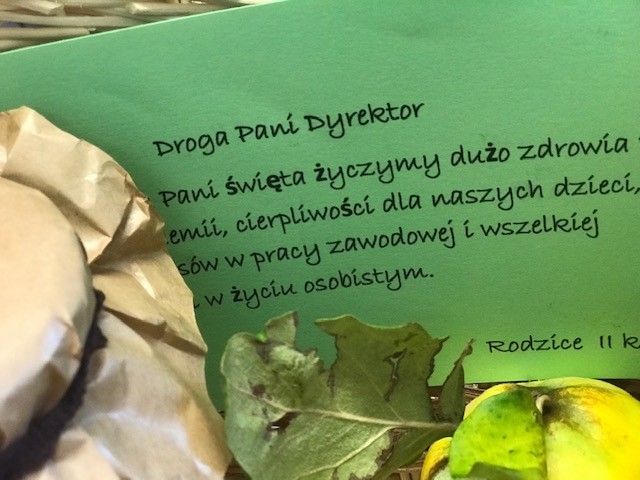 Droga Pani Dyrektor
Pani święta życzymy dużo zdrowia
emii, cierpliwości dla naszych dzieci,
sów w pracy zawodowej i wszelkiej
w życiu osobistym.
Rodzice II k